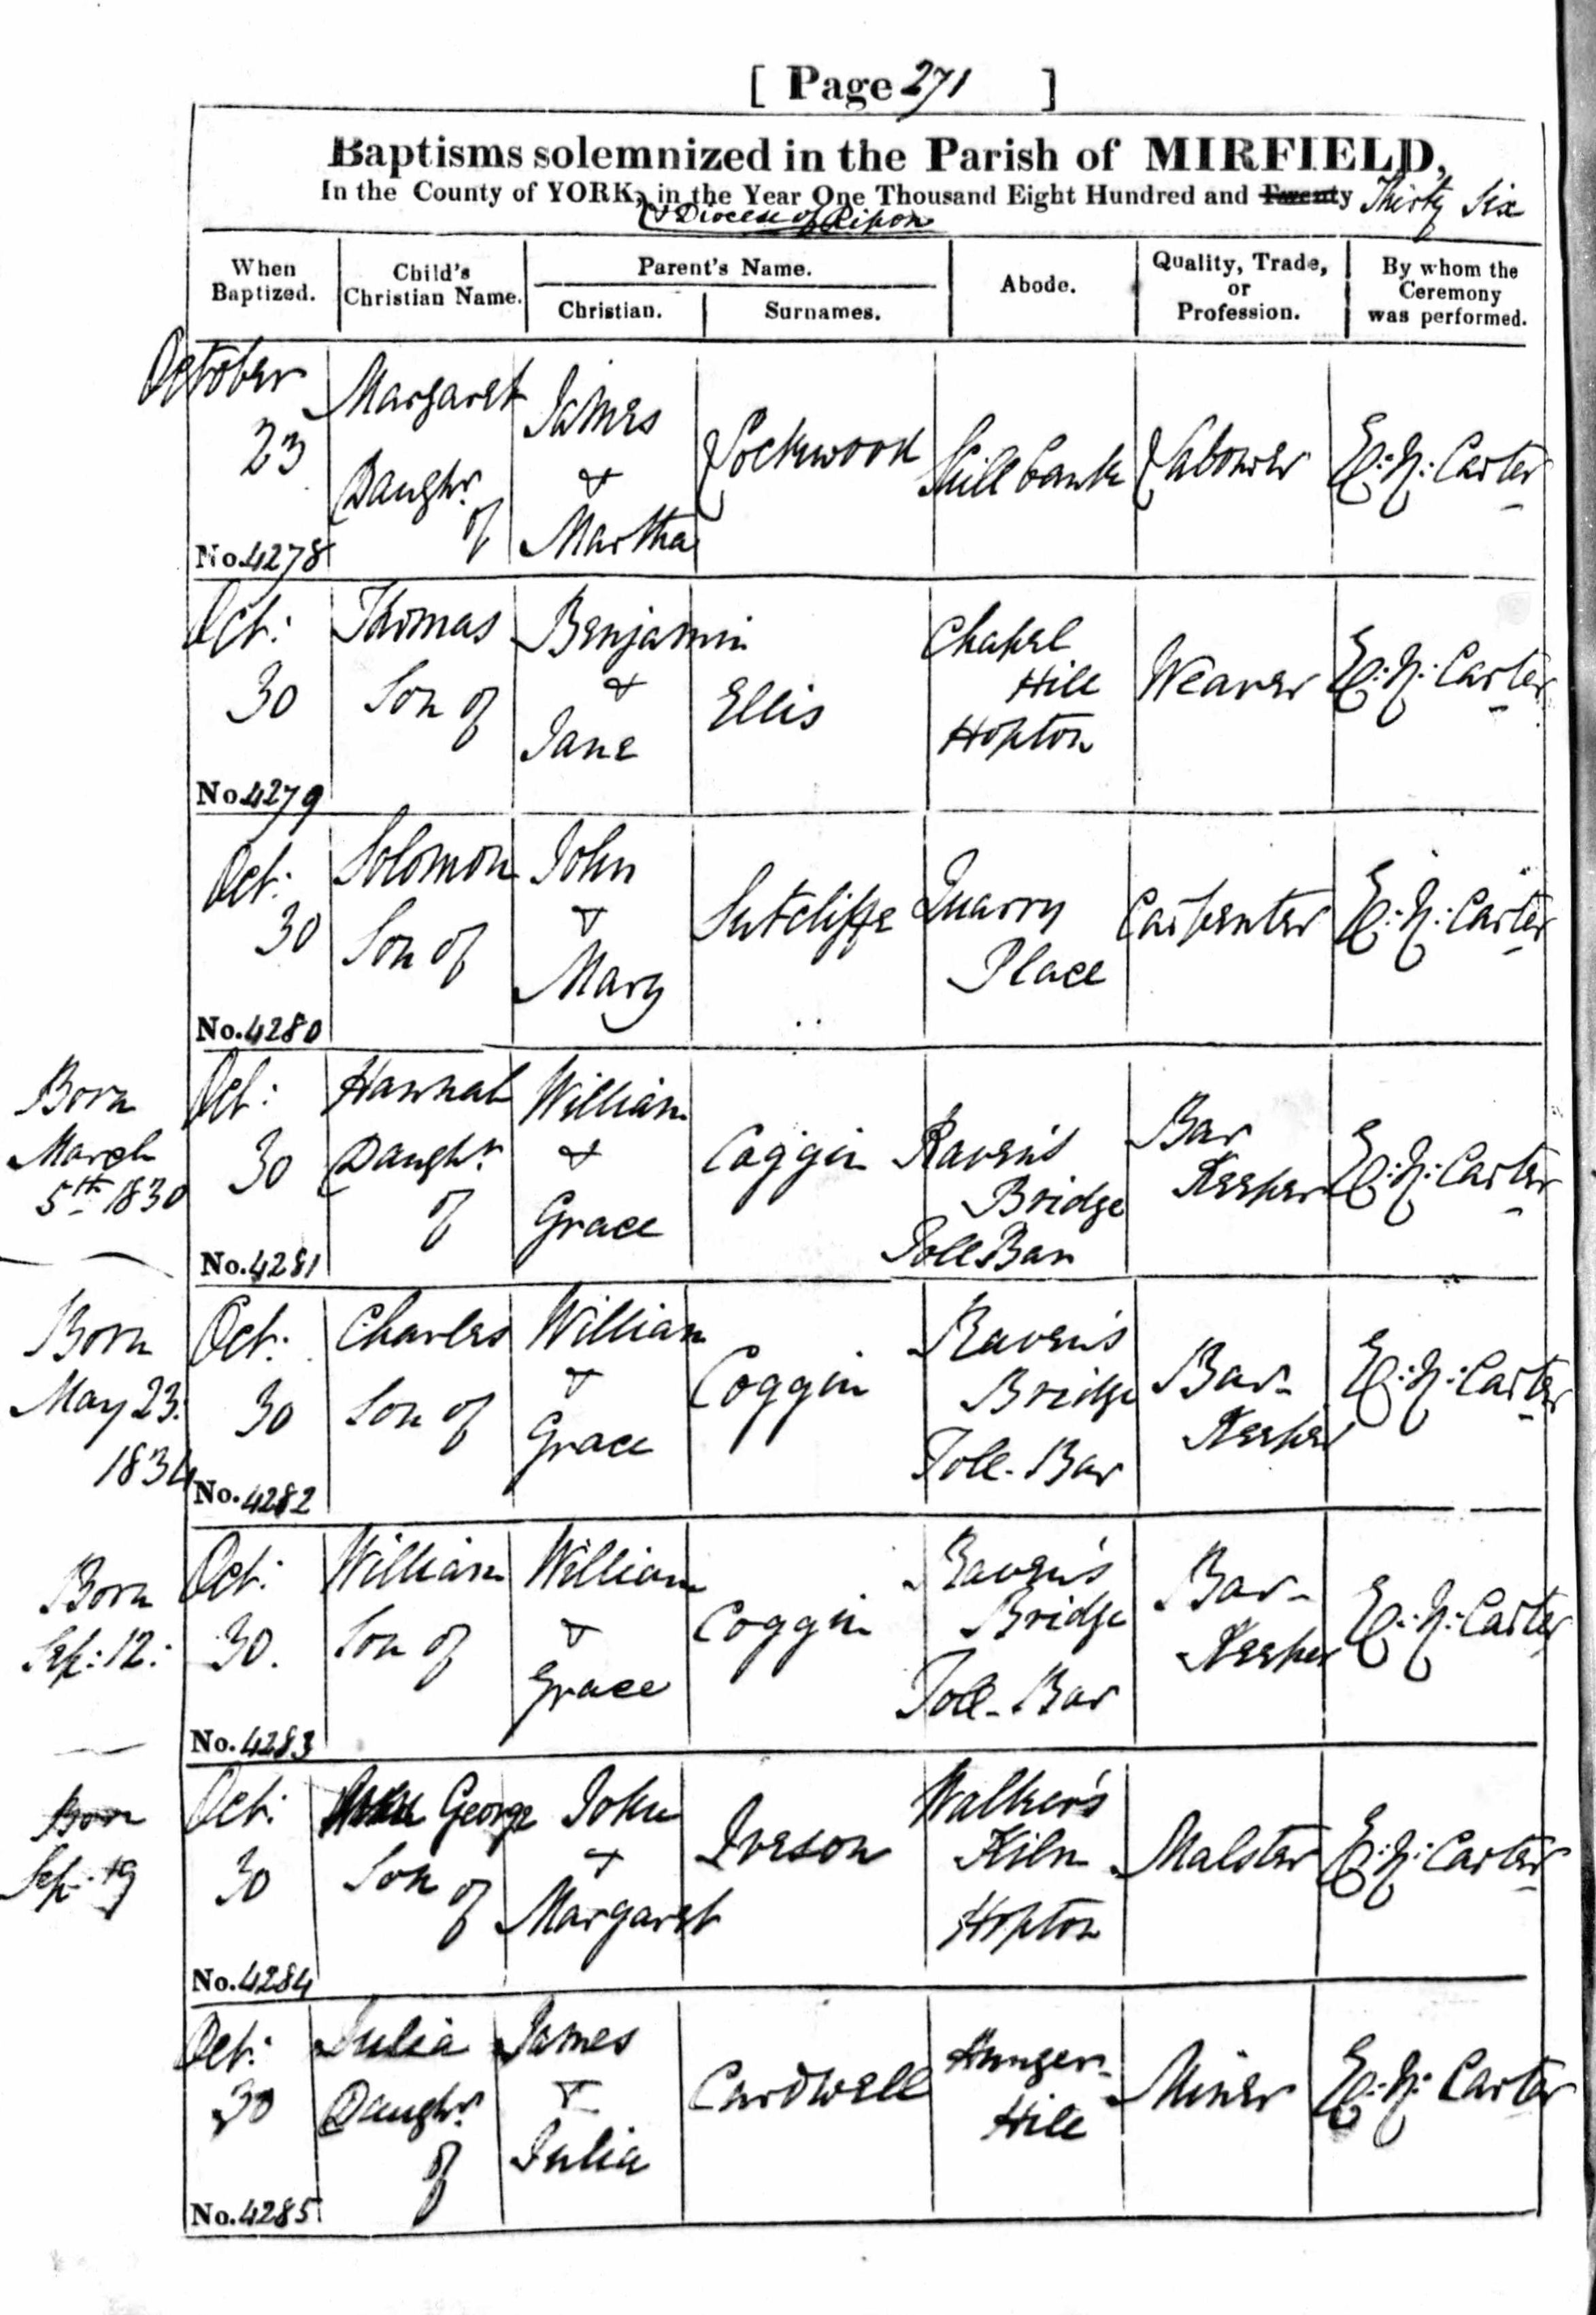 [ Page 271 ]
Baptisms solemnized in the Parish of MIRFIELD,
In the County of YORK, in the Year One Thousand Eight Hundred and Twenty Thirty Six
& Diocese of Ripon
When Baptized.
Child's Christian Name.
Parent's Name.
Christian.
Surnames.
Abode.
Quality, Trade, or Profession.
By whom the Ceremony was performed.
October
23
No. 4278
Margaret
Daughr.
of
James
&
Martha
Lockwood
Hillbank
Labourer
E: N: Carter
Oct:
30
No. 4279
Thomas
Son of
Benjamin
&
Jane
Ellis
Chapel
Hill
Hopton
Weaver
E: N: Carter
Oct:
30
No. 4280
Solomon
Son of
John
&
Mary
Sutcliffe
Quarry
Place
Carpenter
E: N: Carter
Born
March
5th 1830
Oct:
30
No. 4281
Hannah
Daughr.
of
William
&
Grace
Coggin
Raven's
Bridge
Toll Bar
Bar
Keeper
E: N: Carter
Born
May 23:
1834
Oct:
30
No. 4282
Charles
Son of
William
&
Grace
Coggin
Raven's
Bridge
Toll-Bar
Bar-
Keeper
E: N: Carter
Born
Sep: 12:
Oct:
30.
No. 4283
William
Son of
William
&
Grace
Coggin
Raven's
Bridge
Toll-Bar
Bar-
Keeper
E: N: Carter
Born
Sep: 19
Oct:
30
No. 4284
George
Son
of
John
&
Margaret
Iveson
Walker's
Kiln
Hopton
Malster
E: N: Carter
Oct:
30
No. 4285
Julia
Daughr.
of
James
&
Julia
Cardwell
Hunger-
Hill
Miner
E: N: Carter